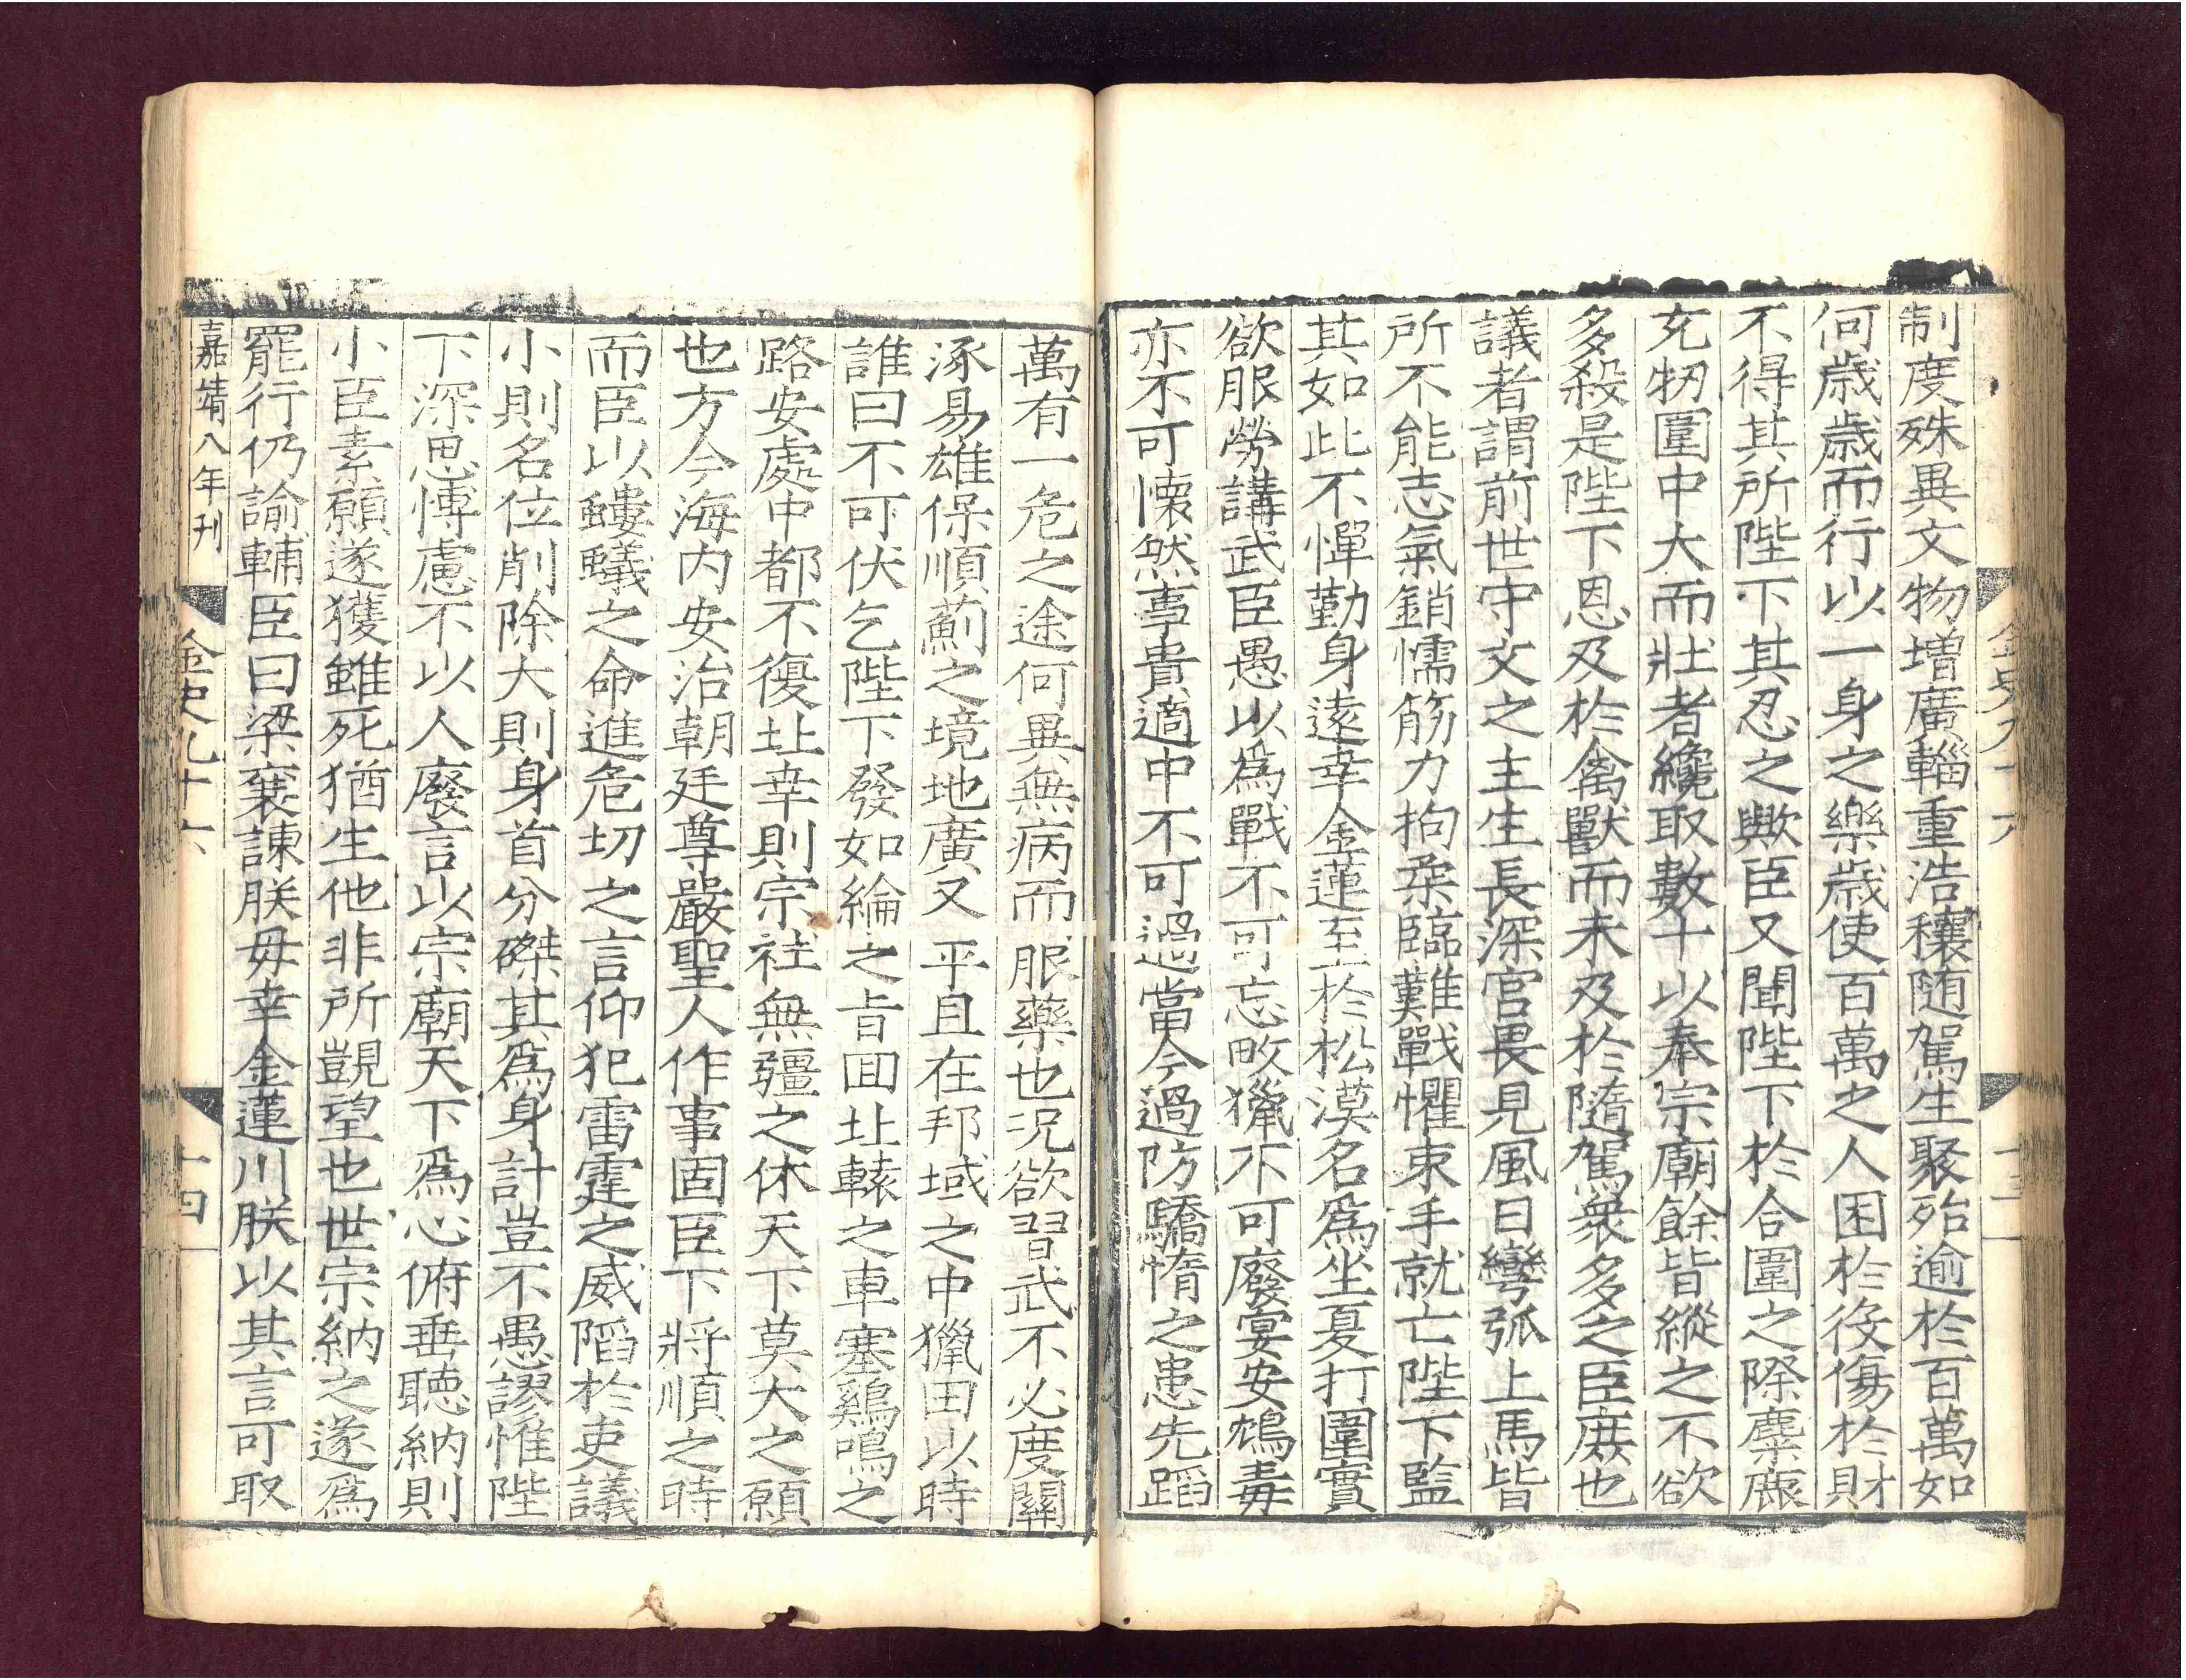 制度殊異文物增廣輜重浩穰随駕生聚殆逾於百萬如
何歲歲而行以一身之樂歲使百萬之人困於役傷於財
不得其所陛下其忍之歟臣又聞陛下於合圍之際麋鹿
充牣圍中大而壯者纔取數十以奉宗廟餘皆縱之不欲
多殺是陛下恩及於禽獸而未及於隨駕衆多之臣庶也
議者謂前世守文之主生長深宮畏見風日彎弧上馬皆
所不能志氣銷懦筋力拘柔臨難戰懼束手就亡陛下監
其如此不憚勤身遠幸金蓮至於松漠名爲坐夏打圍實
欲服勞講武臣愚以爲戰不可忘畋獵不可廢宴安鴆毒
亦不可懐然事貴適中不可過當今過防驕惰之患先蹈
萬有一危之途何異無病而服藥也況欲習武不必度關
涿易雄保順薊之境地廣又平且在邦域之中獵田以時
誰曰不可伏乞陛下發如綸之旨囬北轅之車塞鷄鳴之
路安處中都不復北幸則宗社無疆之休天下莫大之願
也方今海内安治朝廷尊嚴聖人作事固臣下將順之時
而臣以螻蟻之命進危切之言仰犯雷霆之威䧟於吏議
小則名位削除大則身首分磔其爲身計豈不愚謬惟陛
下深思慱慮不以人廢言以宗廟天下爲心俯垂聽納則
小臣素願遂獲雖死猶生他非所覬望也世宗納之遂爲
罷行仍諭輔臣曰梁襄諫朕毋幸金蓮川朕以其言可取
嘉靖八年刊
金史九十六
十四